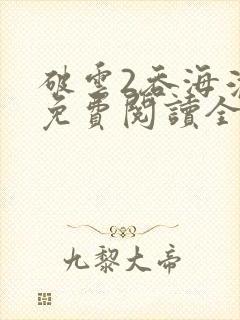 破雲2吞海
免費閱讀全
九黎大帝